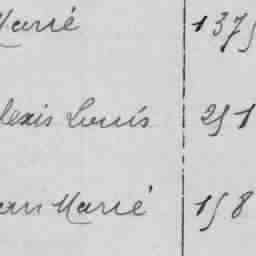 Marié 1375
lexis Louis 251
ean Marié 158